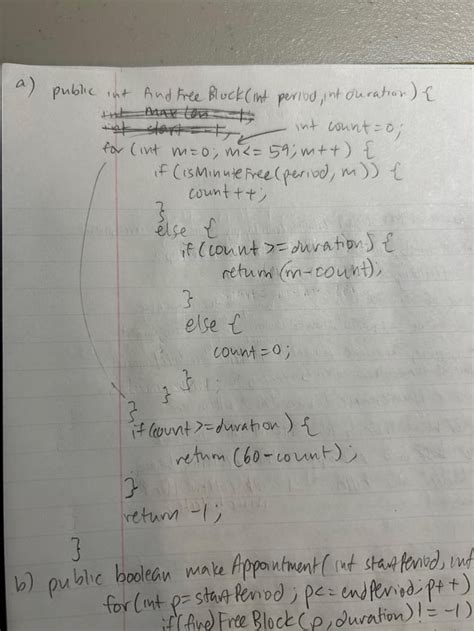 a) public int findFreeBlock(int period, int duration) {
int max len = -1;
int start = -1;
int count = 0;
for (int m=0; m<= 59; m++) {
if (isMinuteFree(period, m)) {
count++;
}
else {
if (count >= duration) {
return (m-count);
}
else {
count = 0;
}
}
}
if (count >= duration) {
return (60-count);
}
return -1;
}
b) public boolean makeAppointment(int startPeriod, int
for(int p = startPeriod; p<= endPeriod; p++)
if(findFreeBlock(p, duration) != -1)